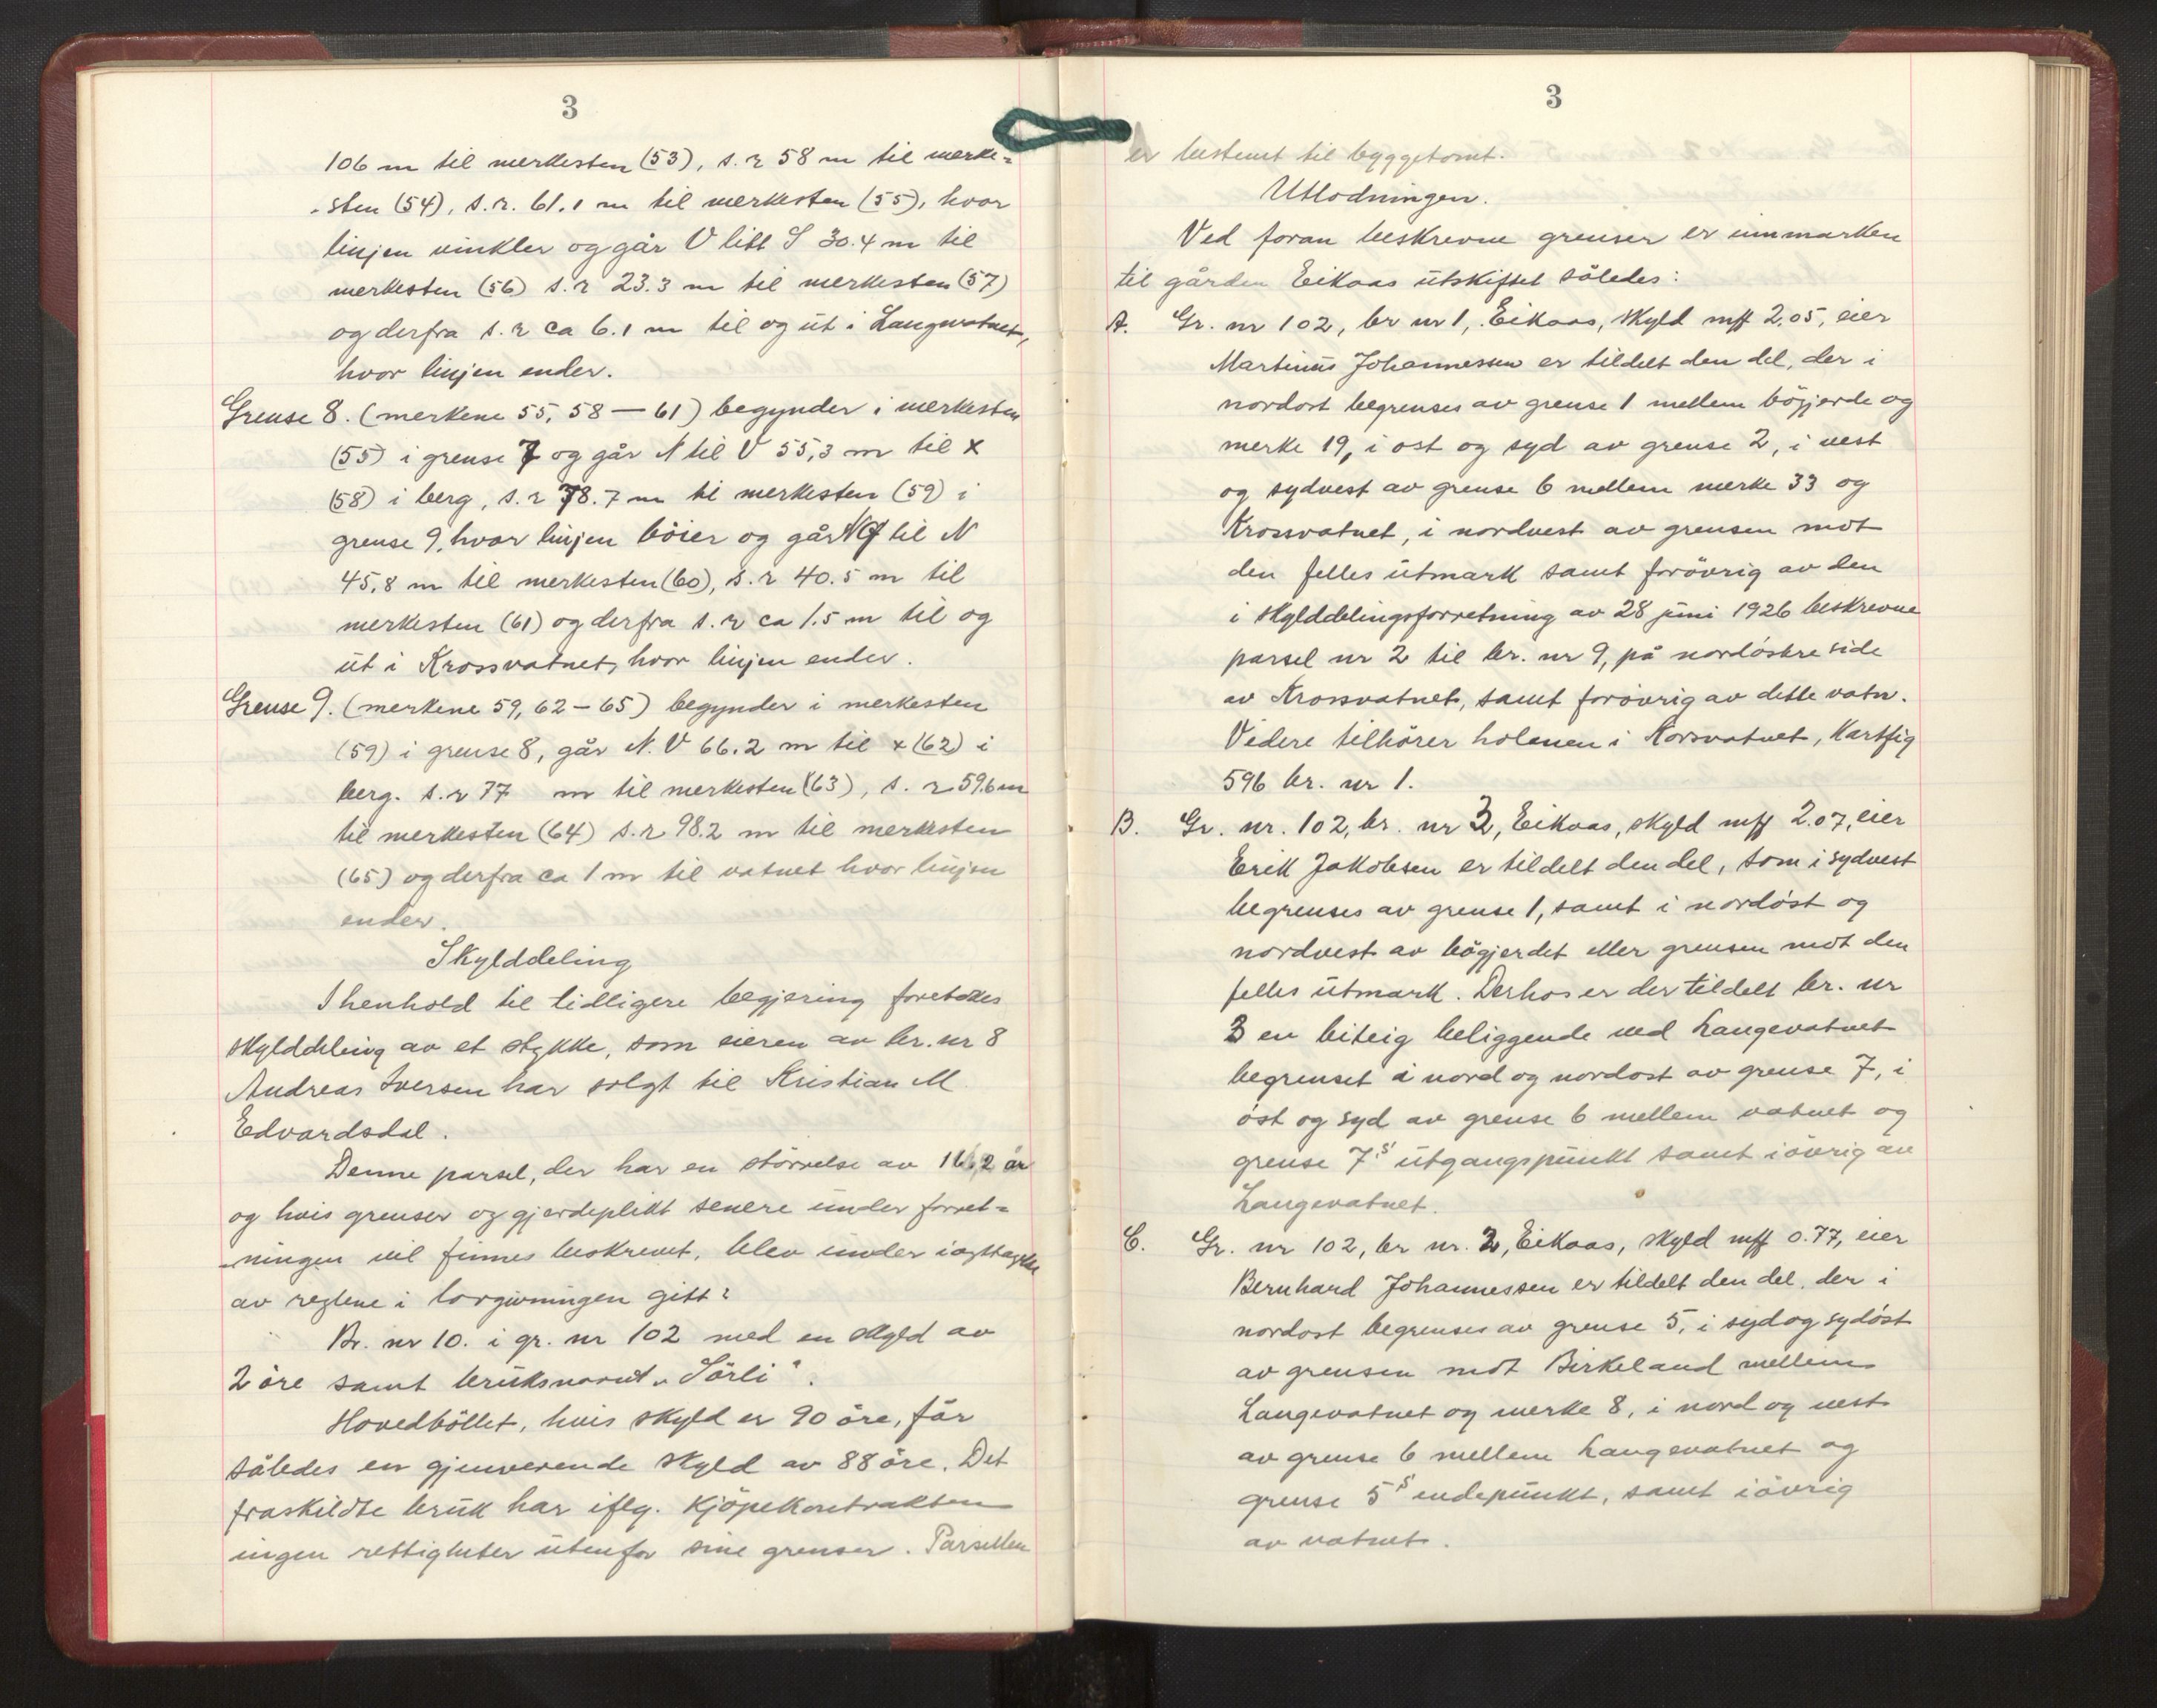 3
106 m til merkesten (53), s. r 58 m til merke=
-sten (54), s. r. 61.1 m til merkesten (55), hvor
linjen vinkler og går V litt S 30.4 m til
merkesten (56) s. r 23.3 m til merkesten (57)
og derfra s. r ca 6.1 m til og ut i Langevatnet,
hvor linjen ender.
Grense 8. (merkene 55, 58 — 61) begynder i merkesten
(55) i grense 7 og går N til V 55,3 m til x
(58) i berg, s. r 78.7 m til merkesten (59) i
grense 9, hvor linjen böier og går NØ til N
45,8 m til merkesten (60), s. r 40.5 m til
merkesten (61) og derfra s. r ca 1.5 m til og
ut i Krossvatnet, hvor linjen ender.
Grense 9. (merkene 59, 62 — 65) begynder i merkesten
(59) i grense 8, går N. V 66.2 m til x (62) i
berg. s. r 77 m til merkesten (63), s. r 59.6 m
til merkesten (64) s. r 98.2 m til merkesten
(65) og derfra ca 1 m til vatnet hvor linjen
ender.
Skylddeling
I henhold til tidligere begjering foretokes
skylddeling av et stykke, som eieren av br. nr 8
Andreas Iversen har solgt til Kristian M
Edvardsdal.
Denne parsel, der har en störrelse av 16,2 ar
og hvis grenser og gjerdeplikt senere under forret=
-ningen vil finnes beskrevet, blev under iagttagelse
av reglene i lovgivningen gitt:
Br. nr 10. i gr. nr 102 med en skyld av
2 öre samt bruksnavnet „Sörli".
Hovedböllet, hvis skyld er 90 öre, får
således en gjenverende skyld av 88 öre. Det
fraskildte bruk har iflg. kjöpekontrakten
ingen rettigheter utenfor sine grenser. Parsellen
3
er bestemt til byggetomt.
Utlodningen.
Ved foran beskrevne grenser er innmarken
til gården Eikaas utskiftet således:
A. Gr. nr 102, br nr 1, Eikaas, skyld mrk 2,05, eier
Martinus Johannessen er tildelt den del, der i
nordost begrenses av grense 1 mellem bögjerde og
merke 19, i ost og syd av grense 2, i vest
og sydvest av grense 6 mellem merke 33 og
Krossvatnet, i nordvest av grensen mot
den felles utmark samt forövrig av den
i skylddelingsforretning av 28 juni 1926 beskrevne
parsel nr 2 til br. nr 9, på nordöstre side
av Krossvatnet, samt forövrig av dette vatn.
Videre tilhörer holmen i Korsvatnet, kartfig
596 br. nr 1.
B. Gr. nr. 102, br. nr 3, Eikaas, skyld mrk 2.07, eier
Erik Jakobsen er tildelt den del, som i sydvest
begrenses av grense 1, samt i nordöst og
nordvest av bögjerdet eller grensen mot den
felles utmark. Derhos er der tildelt br. nr
3 en biteig beliggende ved Langevatnet
begrenset i nord og nordost av grense 7, i
öst og syd av grense 6 mellem vatnet og
grense 7s utgangspunkt samt iövrig av
Langevatnet.
C. Gr. nr 102, br nr. 2, Eikaas, skyld mrk 0.77, eier
Bernhard Johannessen er tildelt den del, der i
nordost begrenses av grense 5, i syd og sydöst
av grensen mot Birkeland mellem
Langevatnet og merke 8, i nord og vest
av grense 6 mellem Langevatnet og
grense 5s endepunkt, samt iövrig
av vatnet.